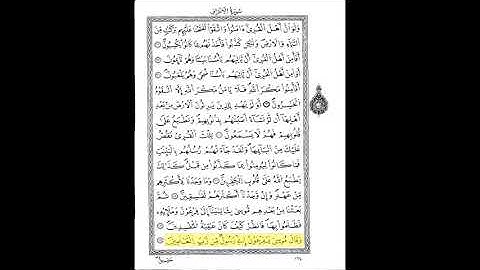 سورة الأعراف
وَلَوْ أَنَّ أَهْلَ ٱلْقُرَىٰٓ ءَامَنُوا۟ وَٱتَّقَوْا۟ لَفَتَحْنَا عَلَيْهِم بَرَكَٰتٍ مِّنَ
ٱلسَّمَآءِ وَٱلْأَرْضِ وَلَٰكِن كَذَّبُوا۟ فَأَخَذْنَٰهُم بِمَا كَانُوا۟ يَكْسِبُونَ
أَفَأَمِنَ أَهْلُ ٱلْقُرَىٰٓ أَن يَأْتِيَهُم بَأْسُنَا بَيَٰتًا وَهُمْ نَآئِمُونَ
أَوَأَمِنَ أَهْلُ ٱلْقُرَىٰٓ أَن يَأْتِيَهُم بَأْسُنَا ضُحًى وَهُمْ يَلْعَبُونَ
أَفَأَمِنُوا۟ مَكْرَ ٱللَّهِ فَلَا يَأْمَنُ مَكْرَ ٱللَّهِ إِلَّا ٱلْقَوْمُ
ٱلْخَٰسِرُونَ أَوَلَمْ يَهْدِ لِلَّذِينَ يَرِثُونَ ٱلْأَرْضَ مِنۢ بَعْدِ
أَهْلِهَآ أَن لَّوْ نَشَآءُ أَصَبْنَٰهُم بِذُنُوبِهِمْ وَنَطْبَعُ عَلَىٰ
قُلُوبِهِمْ فَهُمْ لَا يَسْمَعُونَ تِلْكَ ٱلْقُرَىٰ نَقُصُّ
عَلَيْكَ مِنْ أَنۢبَآئِهَا وَلَقَدْ جَآءَتْهُمْ رُسُلُهُم بِٱلْبَيِّنَٰتِ
فَمَا كَانُوا۟ لِيُؤْمِنُوا۟ بِمَا كَذَّبُوا۟ مِن قَبْلُ كَذَٰلِكَ
يَطْبَعُ ٱللَّهُ عَلَىٰ قُلُوبِ ٱلْكَٰفِرِينَ وَمَا وَجَدْنَا لِأَكْثَرِهِم
مِّنْ عَهْدٍ وَإِن وَجَدْنَآ أَكْثَرَهُمْ لَفَٰسِقِينَ ثُمَّ
بَعَثْنَا مِنۢ بَعْدِهِم مُّوسَىٰ بِـَٔايَٰتِنَآ إِلَىٰ فِرْعَوْنَ وَمَلَإِي۟هِ
فَظَلَمُوا۟ بِهَا فَٱنظُرْ كَيْفَ كَانَ عَٰقِبَةُ ٱلْمُفْسِدِينَ
وَقَالَ مُوسَىٰ يَٰفِرْعَوْنُ إِنِّى رَسُولٌ مِّن رَّبِّ ٱلْعَٰلَمِينَ